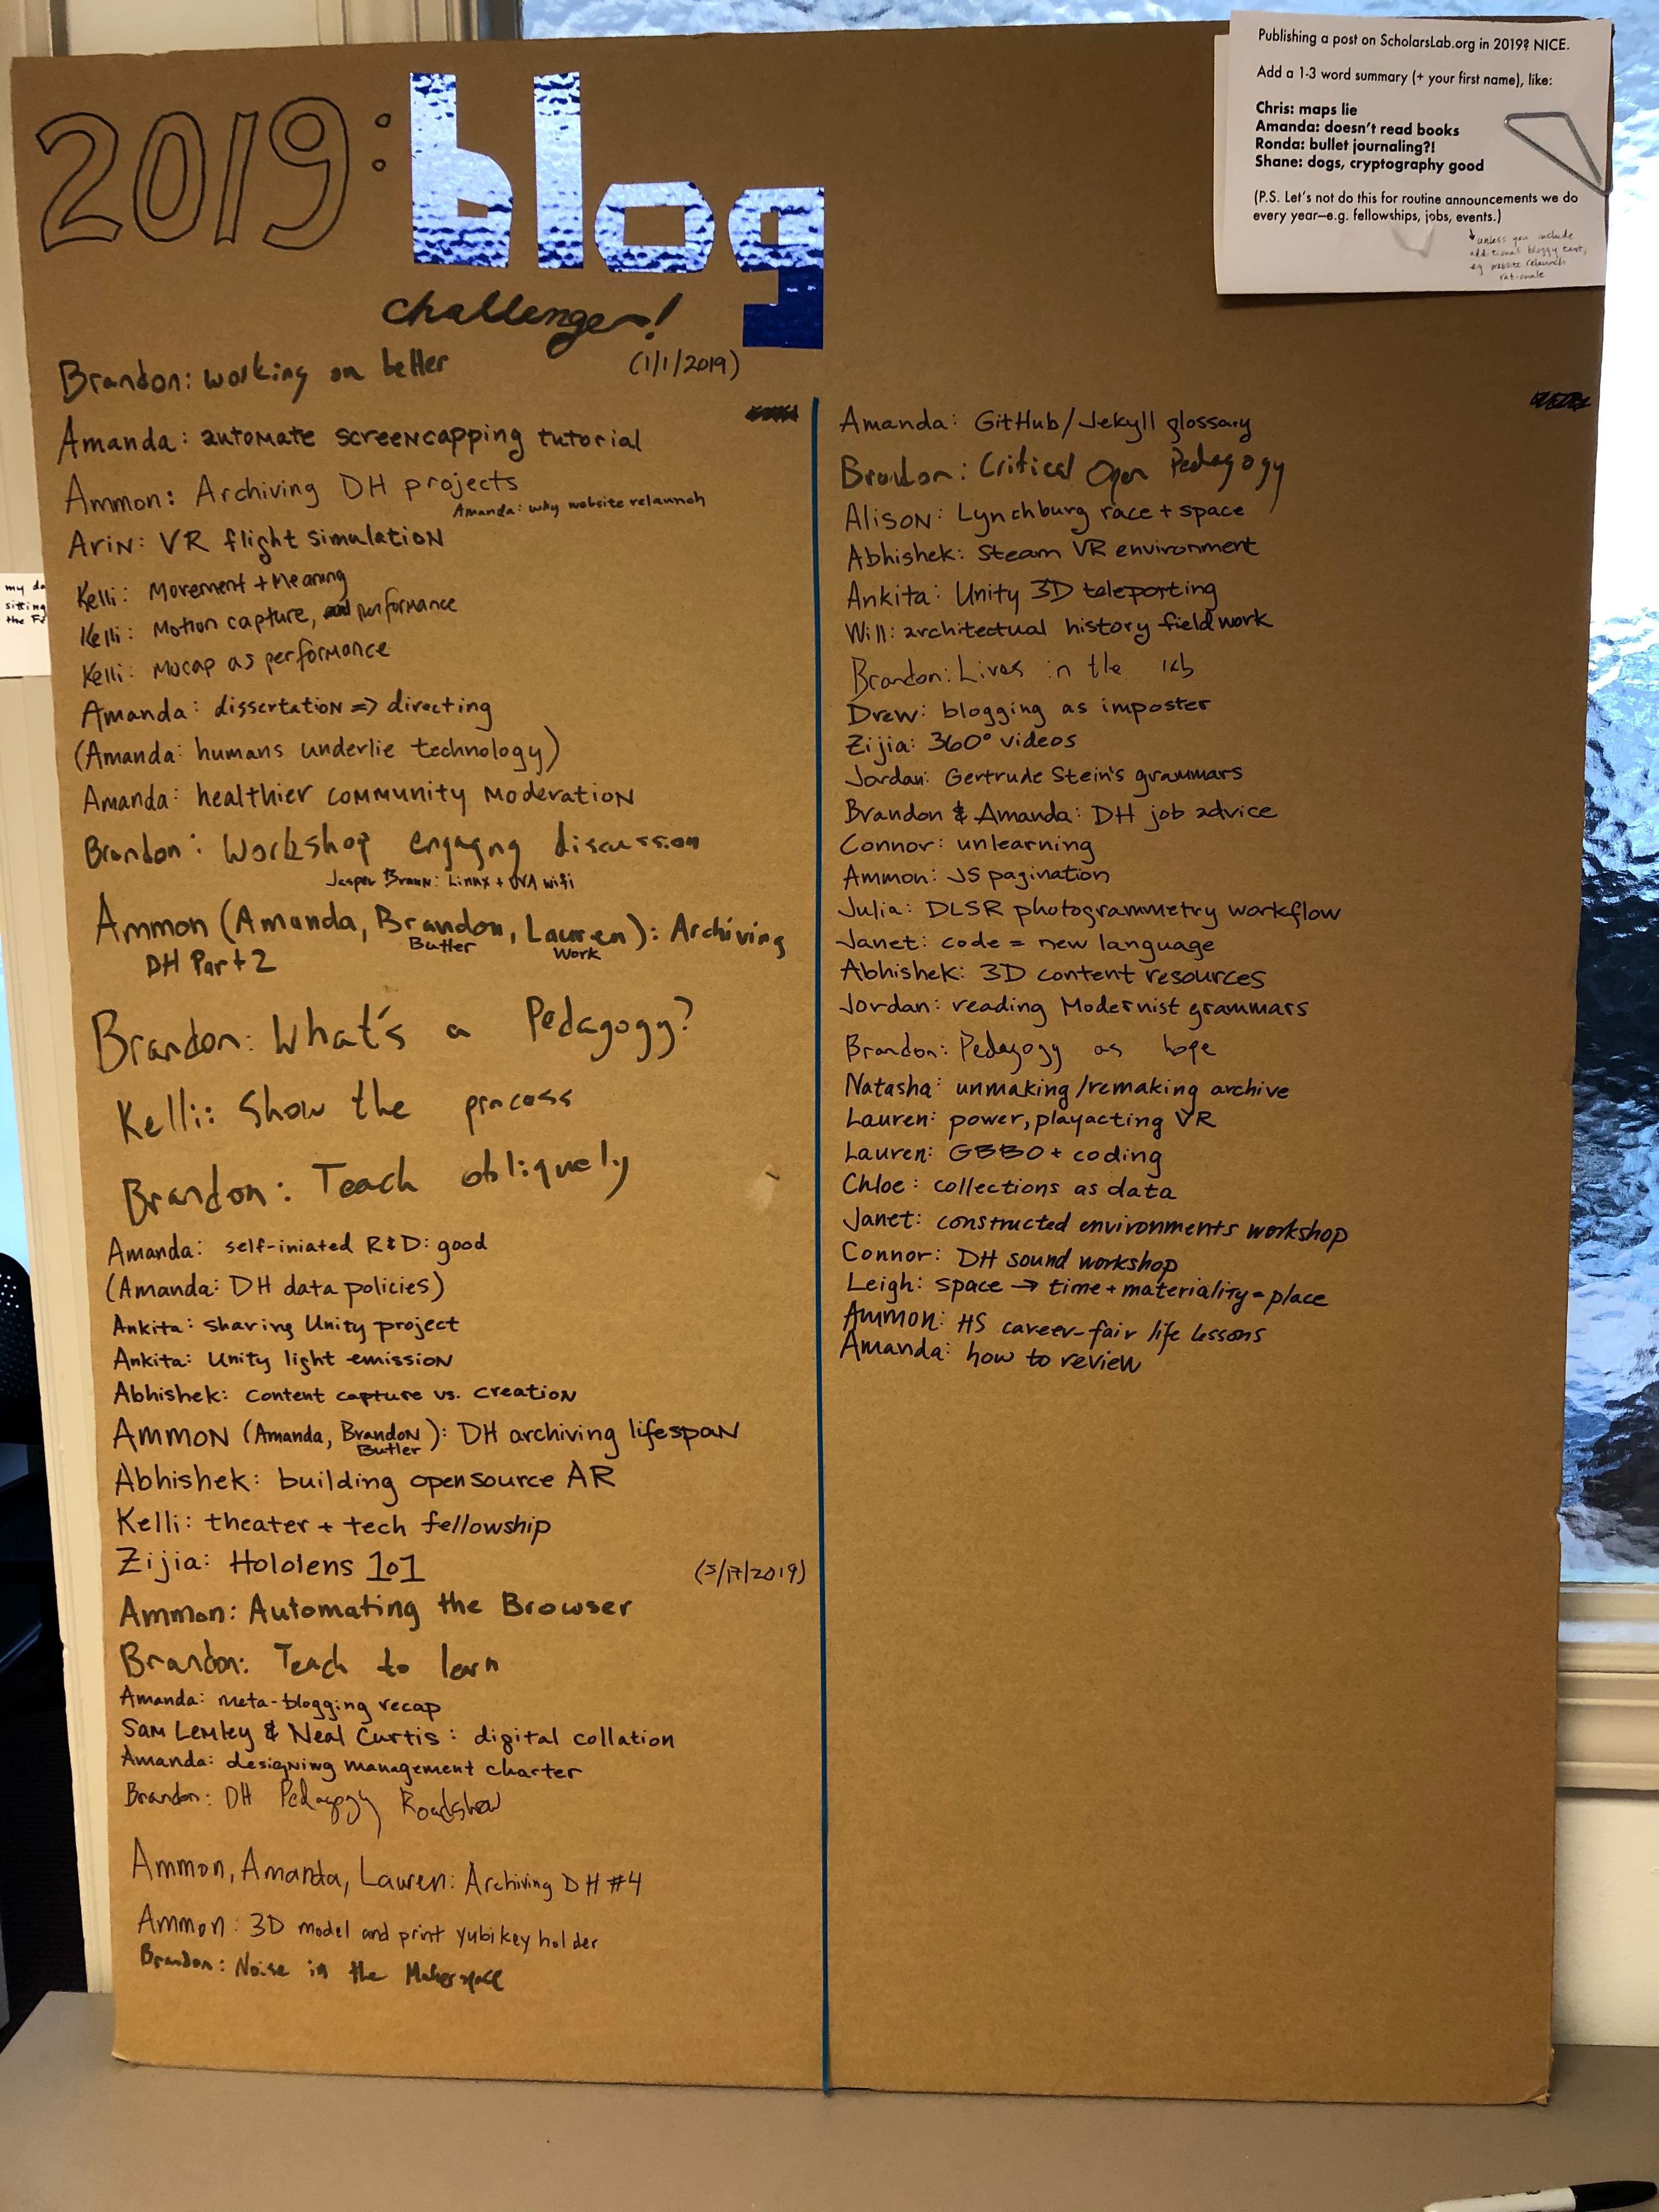 2019: blog
challenge!
Publishing a post on ScholarsLab.org in 2019? NICE.
Add a 1-3 word summary (+ your first name), like:
Chris: maps lie
Amanda: doesn't read books
Ronda: bullet journaling?!
Shane: dogs, cryptography good
(P.S. Let's not do this for routine announcements we do
every year—e.g. fellowships, jobs, events.)
↓ unless you include
additional bloggy text,
eg website relaunch
rationale
my de
sitting
the F
Brandon: working on better (1/1/2019)
Amanda: automate screencapping tutorial
Ammon: Archiving DH projects
Amanda: why website relaunch
Arin: VR flight simulation
Kelli: Movement + Meaning
Kelli: Motion capture, performance
Kelli: Mocap as performance
Amanda: dissertation => directing
(Amanda: humans underlie technology)
Amanda: healthier community moderation
Brandon: Workshop engagng discussion
Jasper Braun: Linux + UVA wifi
Ammon (Amanda, Brandon, Lauren): Archiving
Butler Work
DH Part 2
Brandon: What's a Pedagogy?
Kelli: Show the process
Brandon: Teach obliquely
Amanda: self-iniated R&D: good
(Amanda: DH data policies)
Ankita: sharing Unity project
Ankita: Unity light emission
Abhishek: content capture vs. creation
Ammon (Amanda, Brandon): DH archiving lifespan
Butler
Abhishek: building opensource AR
Kelli: theater + tech fellowship
Zijia: Hololens 101 (5/17/2019)
Ammon: Automating the Browser
Brandon: Teach to learn
Amanda: meta-blogging recap
Sam Lemley & Neal Curtis: digital collation
Amanda: designing management charter
Brandon: DH Pedagogy Roadshow
Ammon, Amanda, Lauren: Archiving DH #4
Ammon: 3D model and print yubikey holder
Brandon: Noise in the Makerspace
Amanda: GitHub/Jekyll glossary
Brandon: Critical Open Pedagogy
Alison: Lynchburg race + space
Abhishek: Steam VR environment
Ankita: Unity 3D teleporting
Will: architectual history fieldwork
Brandon: Lives in the lab
Drew: blogging as imposter
Zijia: 360° videos
Jordan: Gertrude Stein's grammars
Brandon & Amanda: DH job advice
Connor: unlearning
Ammon: JS pagination
Julia: DLSR photogrammetry workflow
Janet: code = new language
Abhishek: 3D content resources
Jordan: reading Modernist grammars
Brandon: Pedagogy as hope
Natasha: unmaking/remaking archive
Lauren: power, playacting VR
Lauren: GBBO + coding
Chloe: collections as data
Janet: constructed environments workshop
Connor: DH sound workshop
Leigh: space → time + materiality = place
Ammon: HS career-fair life lessons
Amanda: how to review